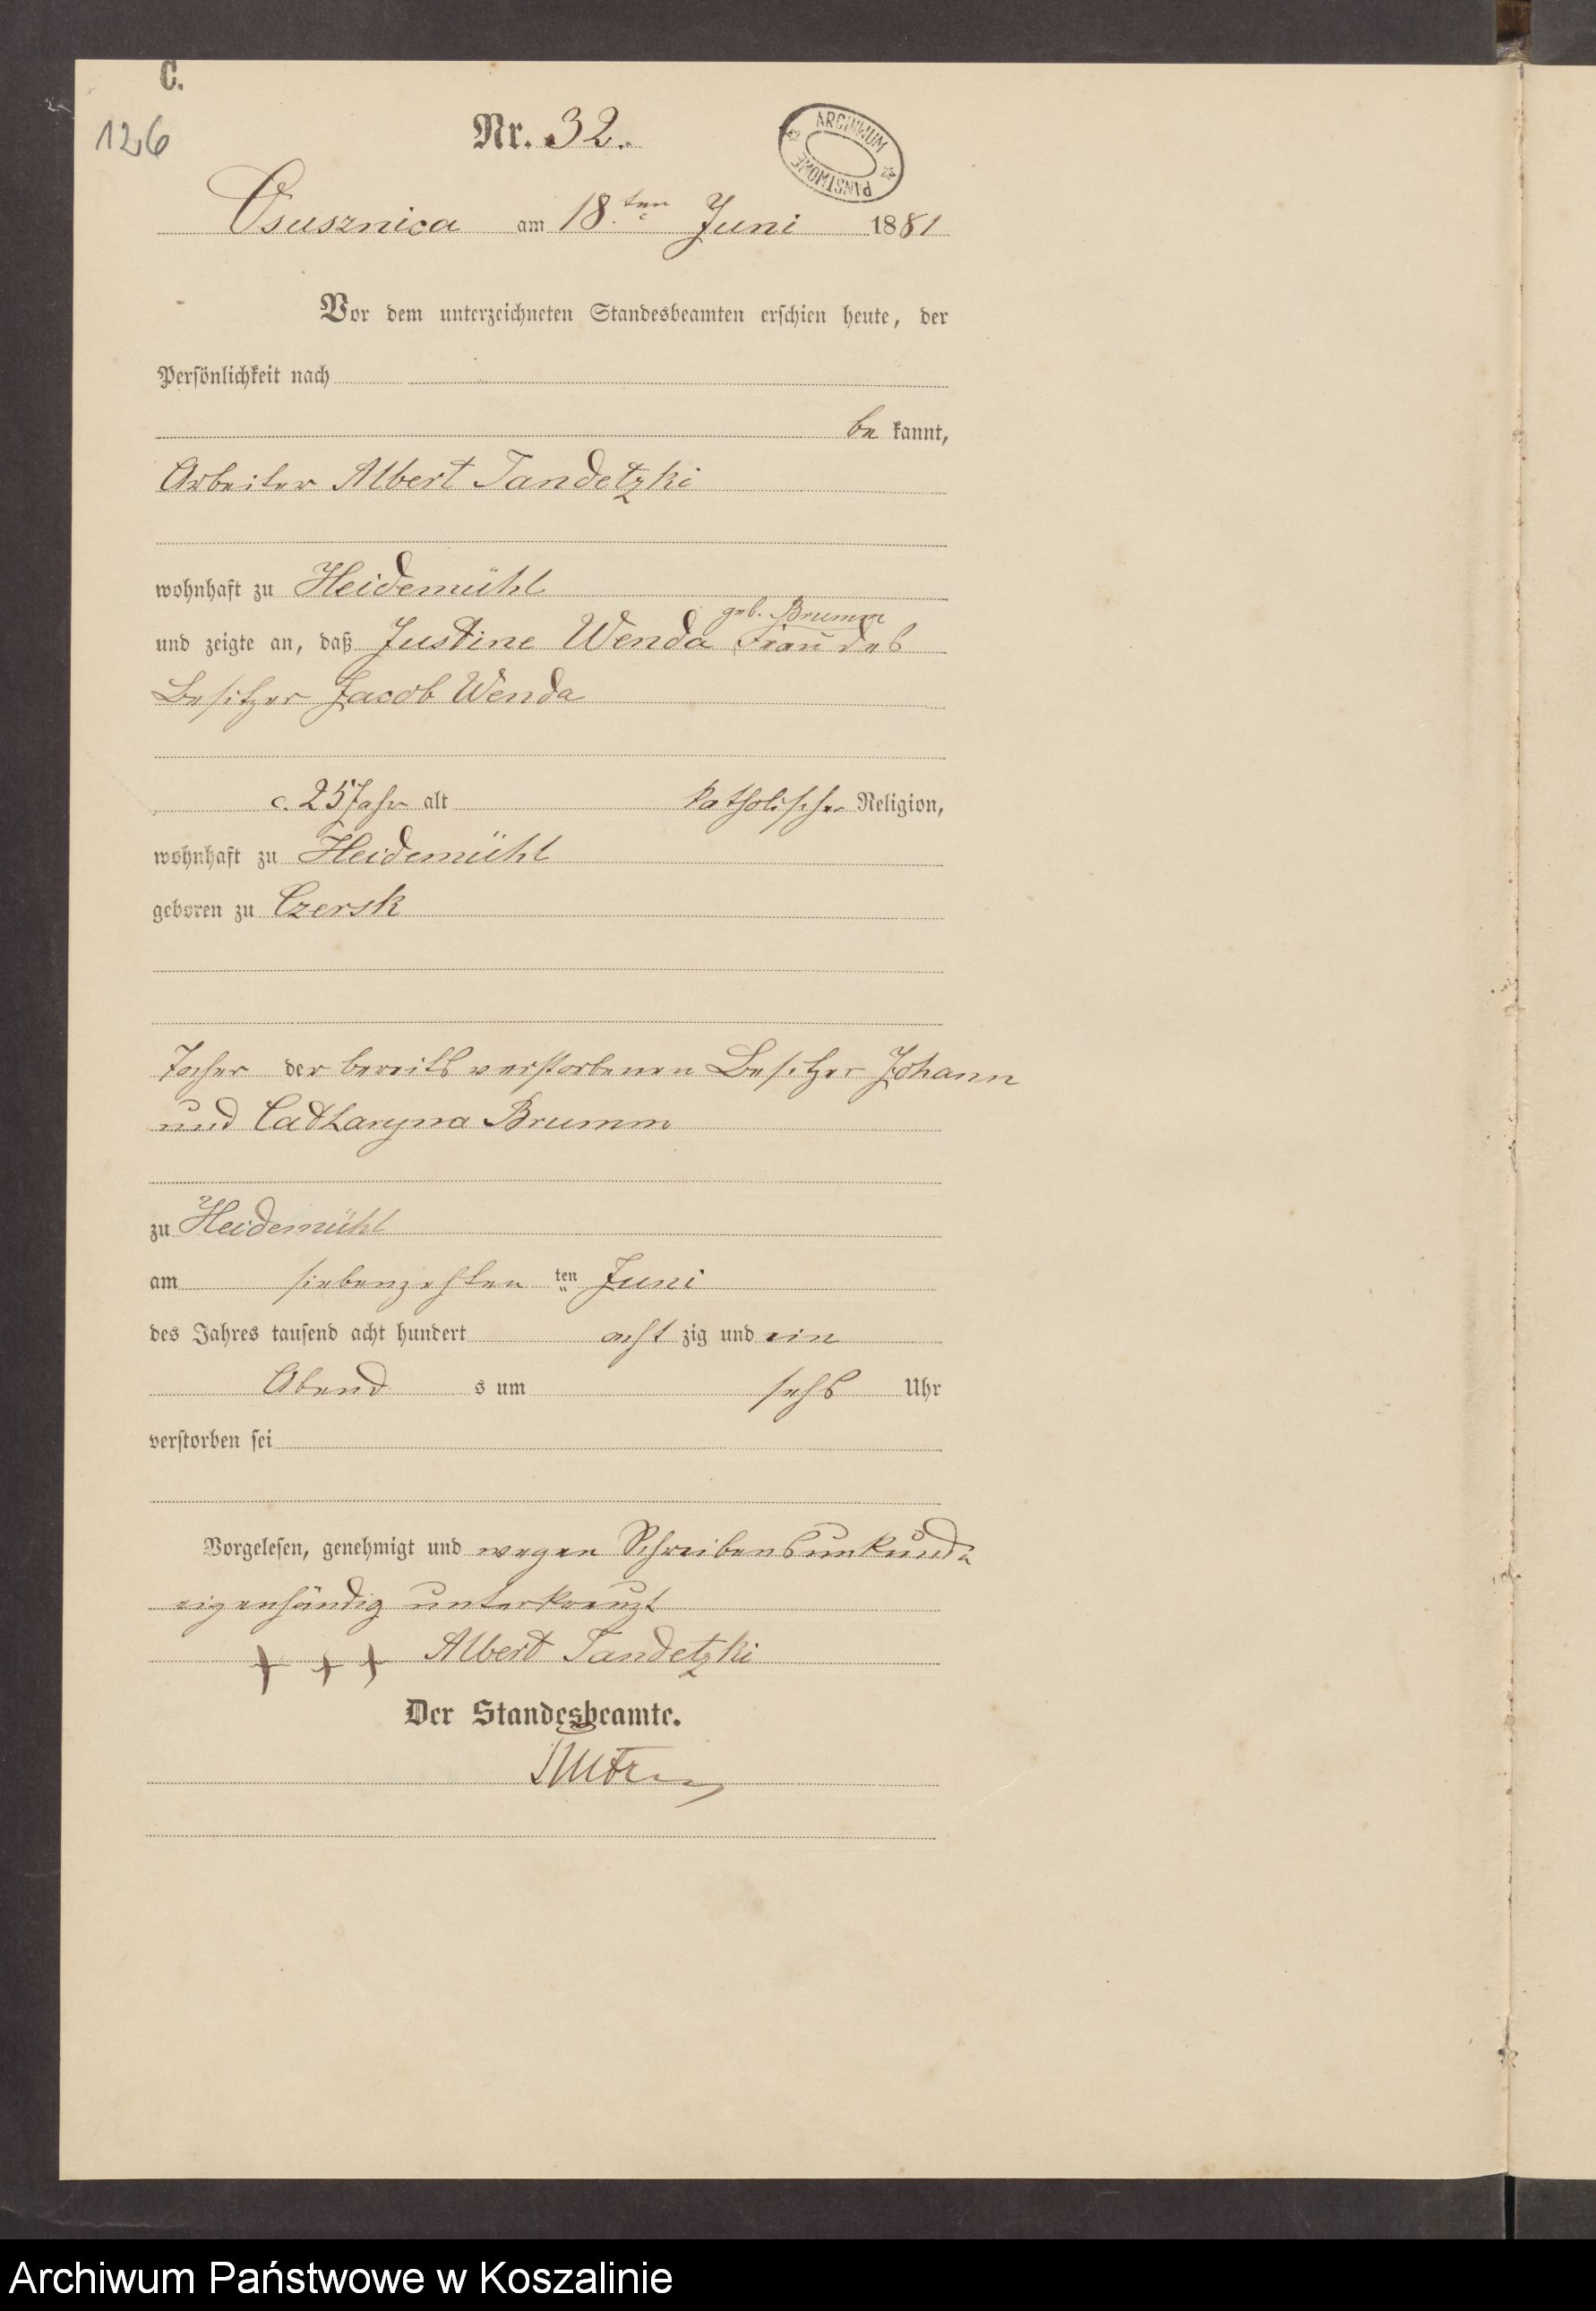 C.
126
Nr. 32.
ARCHIWUM PAŃSTWOWE
Osusznica am 18.ten Juni 1881
Vor dem unterzeichneten Standesbeamten erschien heute, der
Persönlichkeit nach
be kannt,
Arbeiter Albert Tandetzki
wohnhaft zu Heidemühl
geb. Brumm
und zeigte an, daß Justine Wenda Frau des
Besitzer Jacob Wenda
c. 25 Jahr alt katholischer Religion,
wohnhaft zu Heidemühl
geboren zu Czersk
der bereits verstorbenen Besitzer Johann
und Catharyna Brumm
zu Heidemühl
am siebenzehten ten Juni
des Jahres tausend acht hundert acht zig und ein
Abend s um sechs Uhr
verstorben sei
Vorgelesen, genehmigt und wegen Schreibensunkunde
eigenhändig unterkreuzt
+ + + Albert Tandetzki
Der Standesbeamte.
Archiwum Państwowe w Koszalinie